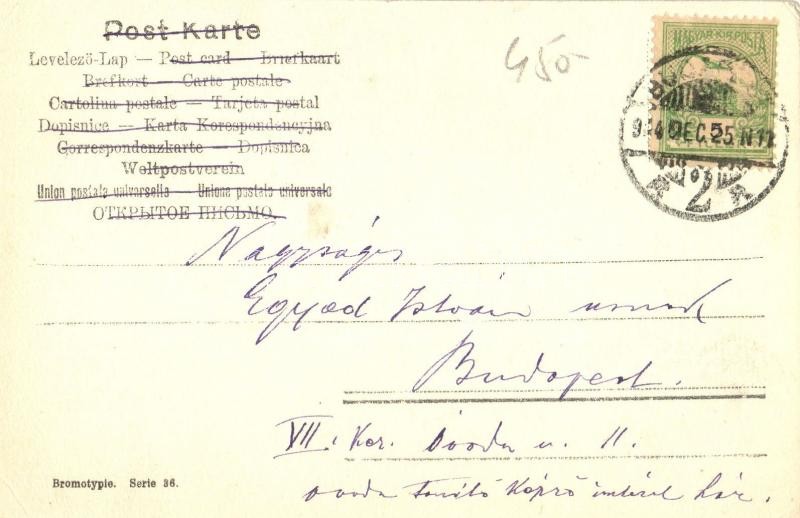 Post Karte
Levelező-Lap — Post card — Briefkaart
Brefkort — Carte postale
Cartolina postale — Tarjeta postal
Dopisnice — Karta Korespondencyjna
Correspondenzkarte — Dopisnica
Weltpostverein
Union postale universelle — Unione postale universale
ОТКРЫТОЕ ПИСЬМО.
450-
MAGYAR KIR. POSTA
DEC. 25 N 12
5
2
Nagyságos
Egyed István urnak
Budapest.
VII. Ker. Óvoda u. 11.
óvoda tanító képző intézet ház.
Bromotypie. Serie 36.